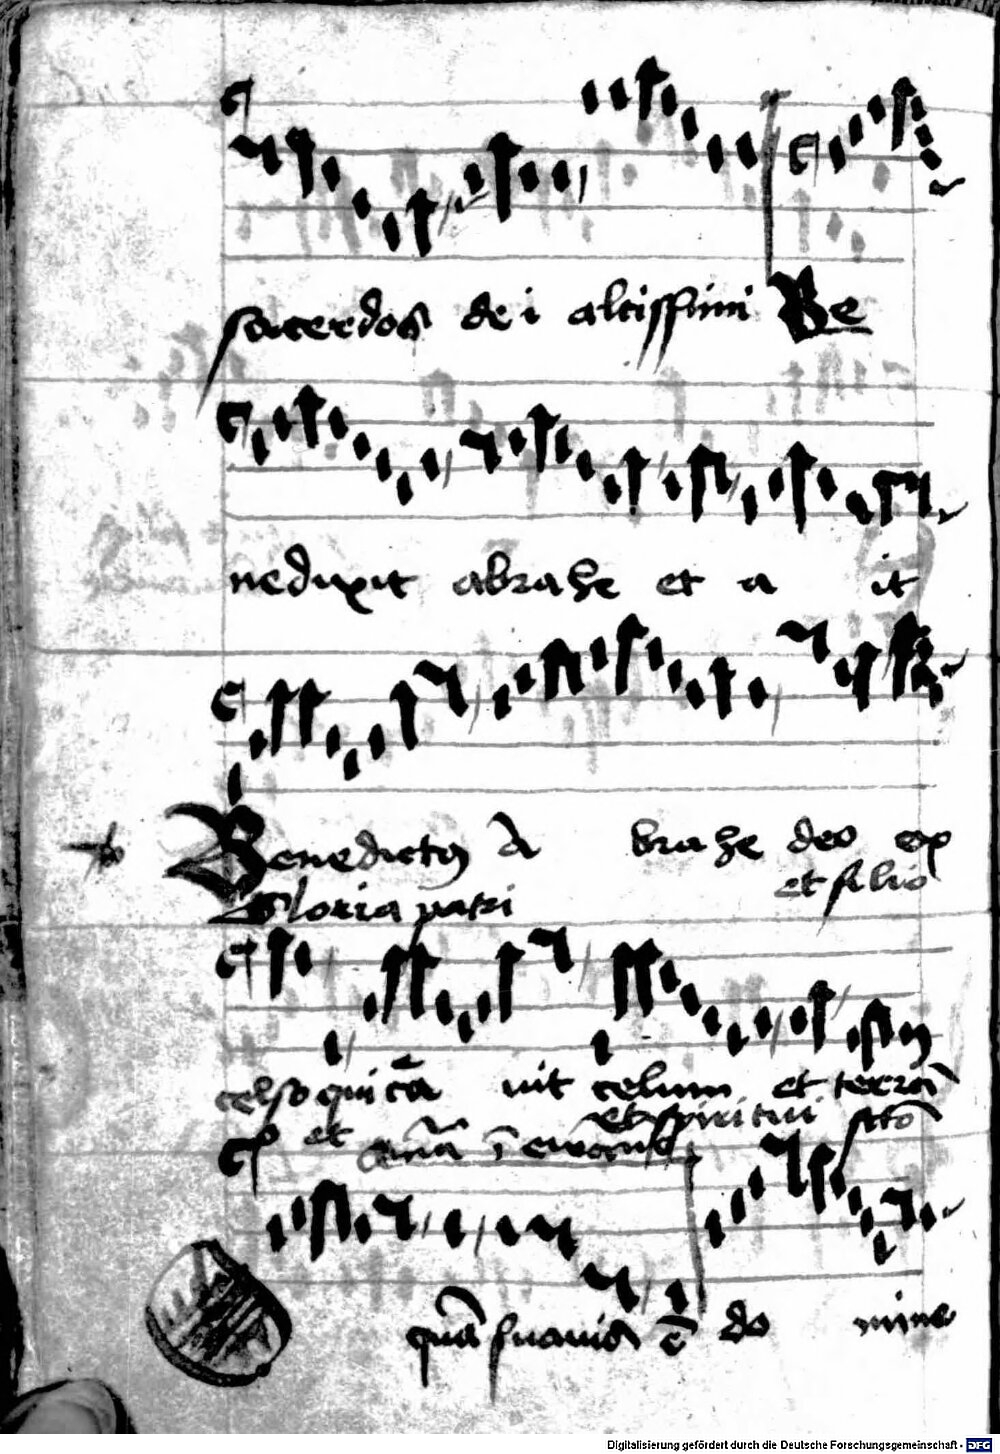 sacerdos dei altissimi Be
nedixit abrahe et a it
Benedictus A brahe deo ex
Gloria patri et filio
celso qui ca uit celum et terra
et spiritui scto
quam suauis e do mine
Digitalisierung gefördert durch die Deutsche Forschungsgemeinschaft - DFG